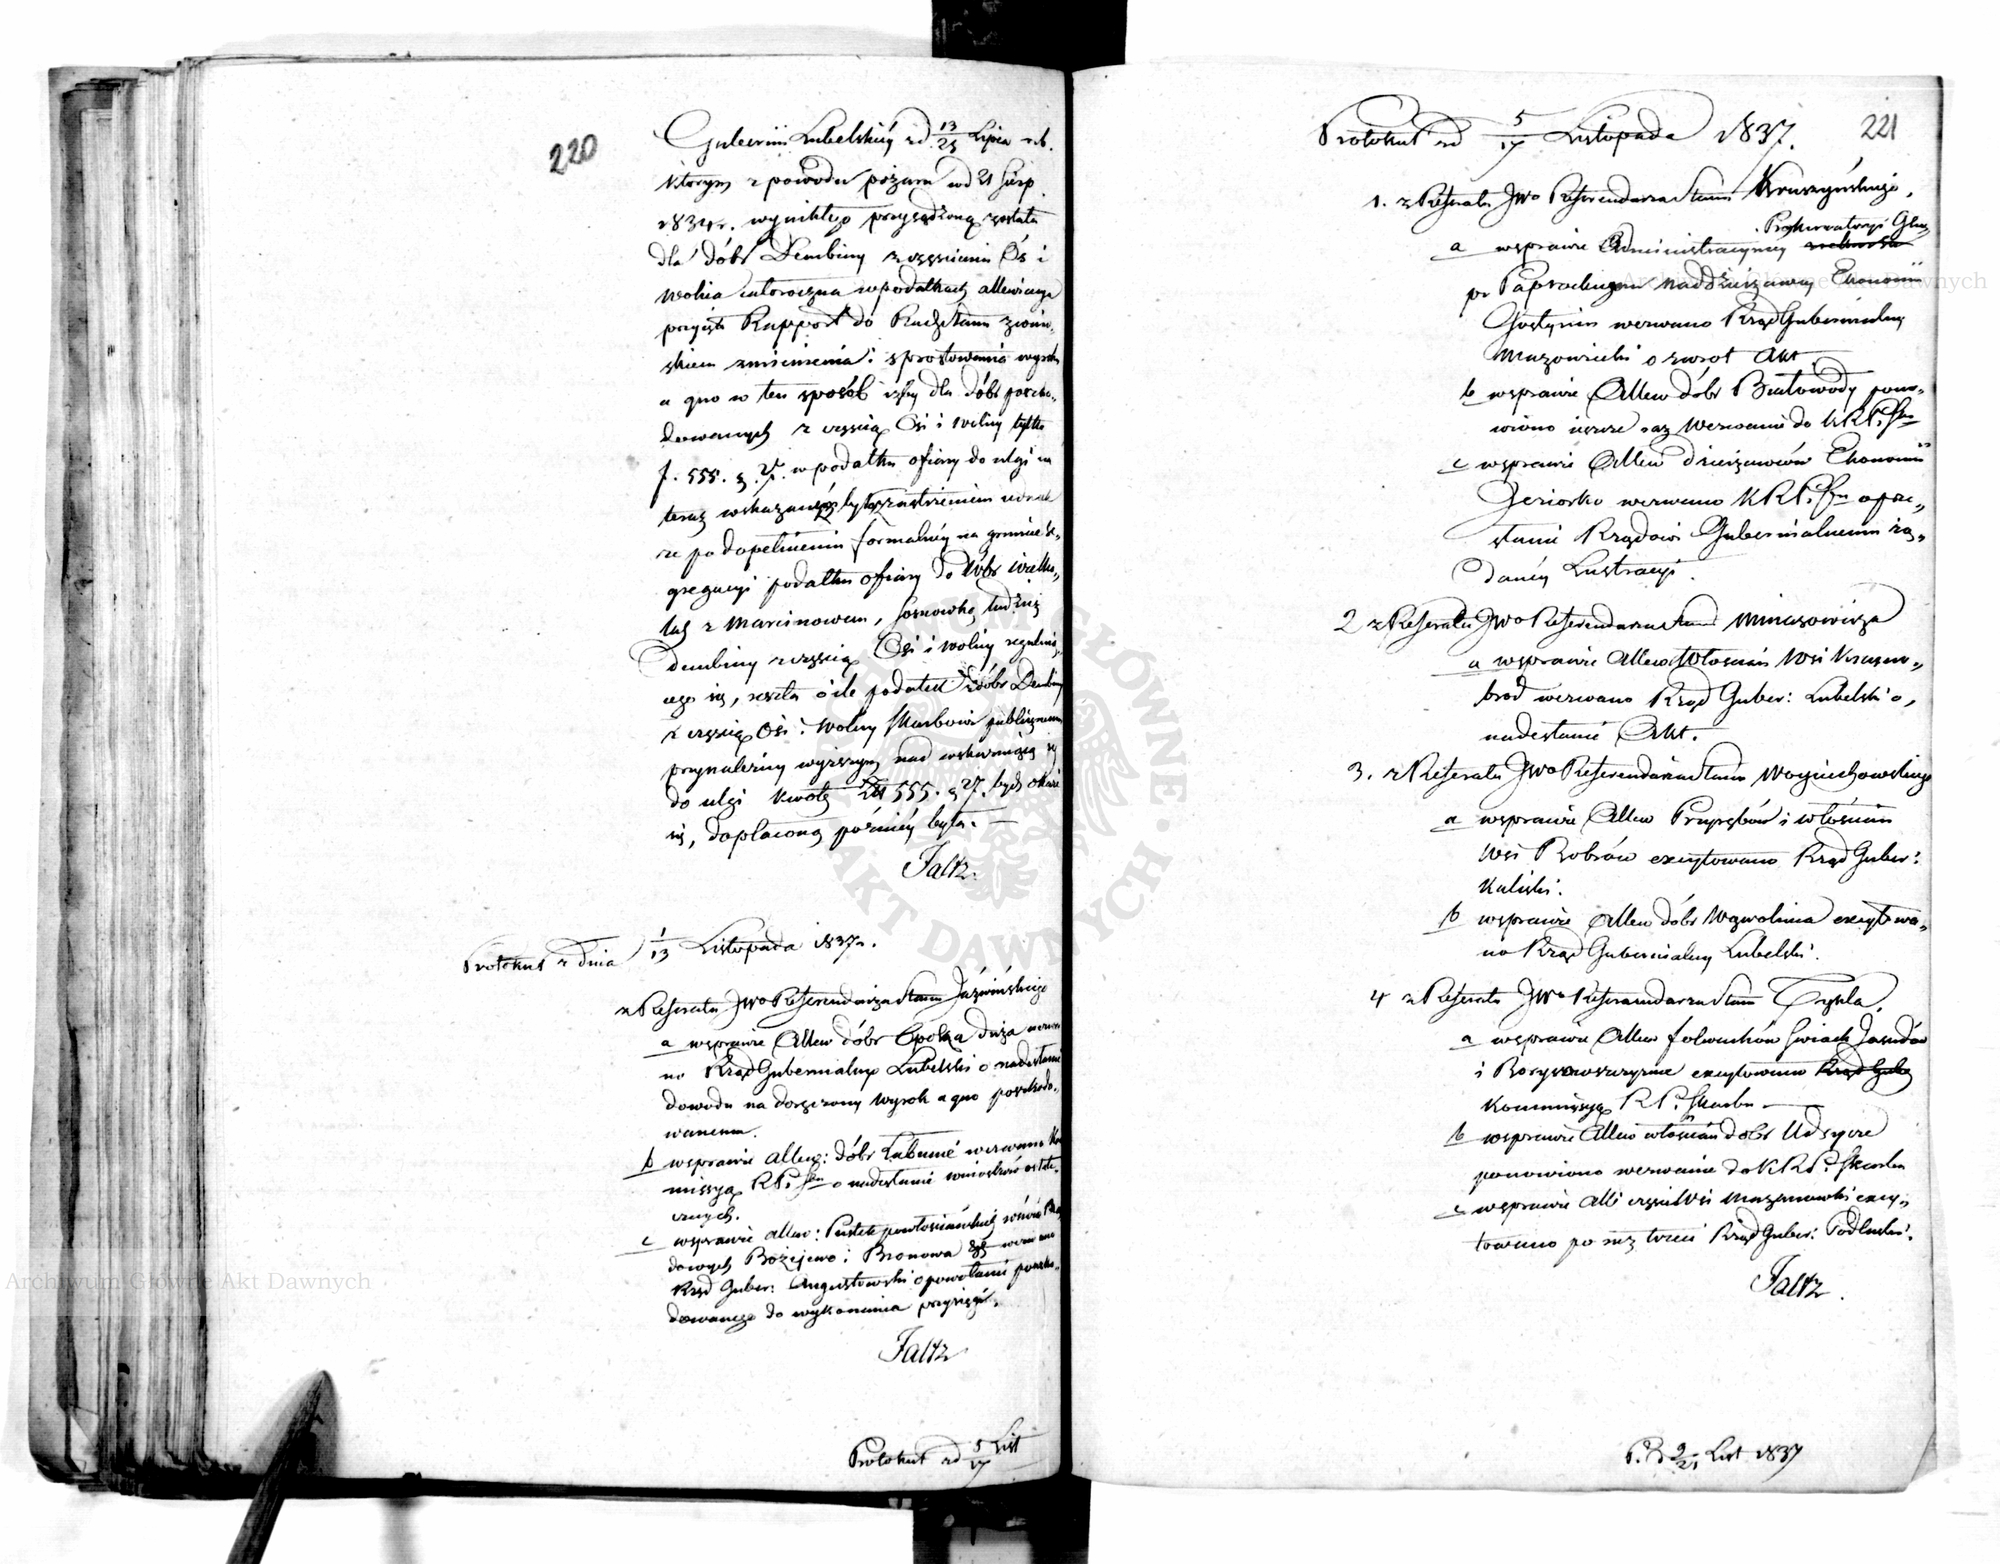 220
Gubernii Lubelskiéy z d. 13/25 Lipca r. b.
którym z powodu pożaru w d 21 Sierp
1834 r. wynikłego przysądzoną została
dla dóbr Dembiny z częściami Osi i
Wolica całoroczna w podatkach allewiacya
przyjęto Rapport do Rady Stanu z wnio-
skiem zmienienia i sprostowania wyroku
a quo w ten sposób iżby dla dóbr poszko-
dowanych z częścią Osi i Woliny tylko
f. 555. g. 27. w podatku ofiary do ulgi
teraz wskazaną było z zastrzeżeniem wszak
że po dopełnieniu formalnéy na gruncie se-
gregacyi podatku ofiary do dóbr
z Marcinowem, Sosnówką, tudzież
Dembiny z częścią Osi i Woliny
się, reszta o ile podatek z dóbr Dembiny
z częścią Osi i Woliny Skarbowi publicznemu
przynależny wyższym nad wskazującą się
do ulgi kwotę Zł 555. g 27. bydź okaże
się, dopłaconą późniéy była.—
Faltz.
Protokuł z dnia 1/13 Listopada 1837 r.
z Referatu JWo Referendarza Stanu Jaźwińskiego
a w sprawie Allew dóbr Opoka Duża wezwa
no Rząd Gubernialny Lubelski o nadesłanie
dowodu na doręczony wyrok a quo poszkodo-
wanemu.
b w sprawie allew: dóbr Łabunie wezwano Ko
missyą R. P. i Sbu o nadesłanie wniosków ostate-
cznych.
c w sprawie allew: Pustek powłościańskich
dowych Bożejewo i Bronowa wezwano
Rząd Guber: Augustowski o powołanie poszko-
dowanego do wykonania przysięgi.
Faltz
Protokuł z d 5/17 List
221
Protokuł z d 5/17 Listopada 1837.
1. z Referatu JWo Referendarza Stanu Kruszyńskiego.
Prokuratoryi Glney
a w sprawie Administracyiney
pr Paprockiemu Naddzierżawcy Ekonomii
Gostynin wezwano Rząd Gubernialny
Mazowiecki o zwrot Akt.
b w sprawie Allew dóbr Białowody pono-
wiono jeszcze raz wezwanie do KRP. i Sbu
c w sprawie Allew dzierżawców Ekonomii
Jeziorko wezwano KRP. i Sbu o prze-
słanie Rządowi Gubernialnemu żą-
danéy Lustracyi.
2 z Referatu JWo Referendarza Stanu Minasowicza
a w sprawie Allew Włościan Wsi Krasno-
brod wezwano Rząd Guber: Lubelski o
nadesłanie Akt.
3. z Referatu JWo Referendarza Stanu Woyciechowskiego
a w sprawie Allew Przyrębów i włościan
Wsi Bobrów excytowano Rząd Guber:
Kaliski.
b w sprawie Allew dóbr Wąwolnica excytowa-
no Rząd Gubernialny Lubelski.
4 z Referatu JWo Referendarza Stanu Tykla.
a w sprawie Allew folwarków
i Borysowszczyzna excytowano Rząd Gube
Kommissyą R. P. i Skarbu —
b w sprawie Allew włościan dóbr Udrycze
ponowiono wezwanie do KRP. i Skarbu
c w sprawie Alle części Wsi Mazanowski excy-
towano po raz trzeci Rząd Guber: Podlaski.
Faltz.
P. z 9/21 List 1837
Archiwum Główne Akt Dawnych
Archiwum Główne Akt Dawnych
ARCHIWUM GŁÓWNE AKT DAWNYCH